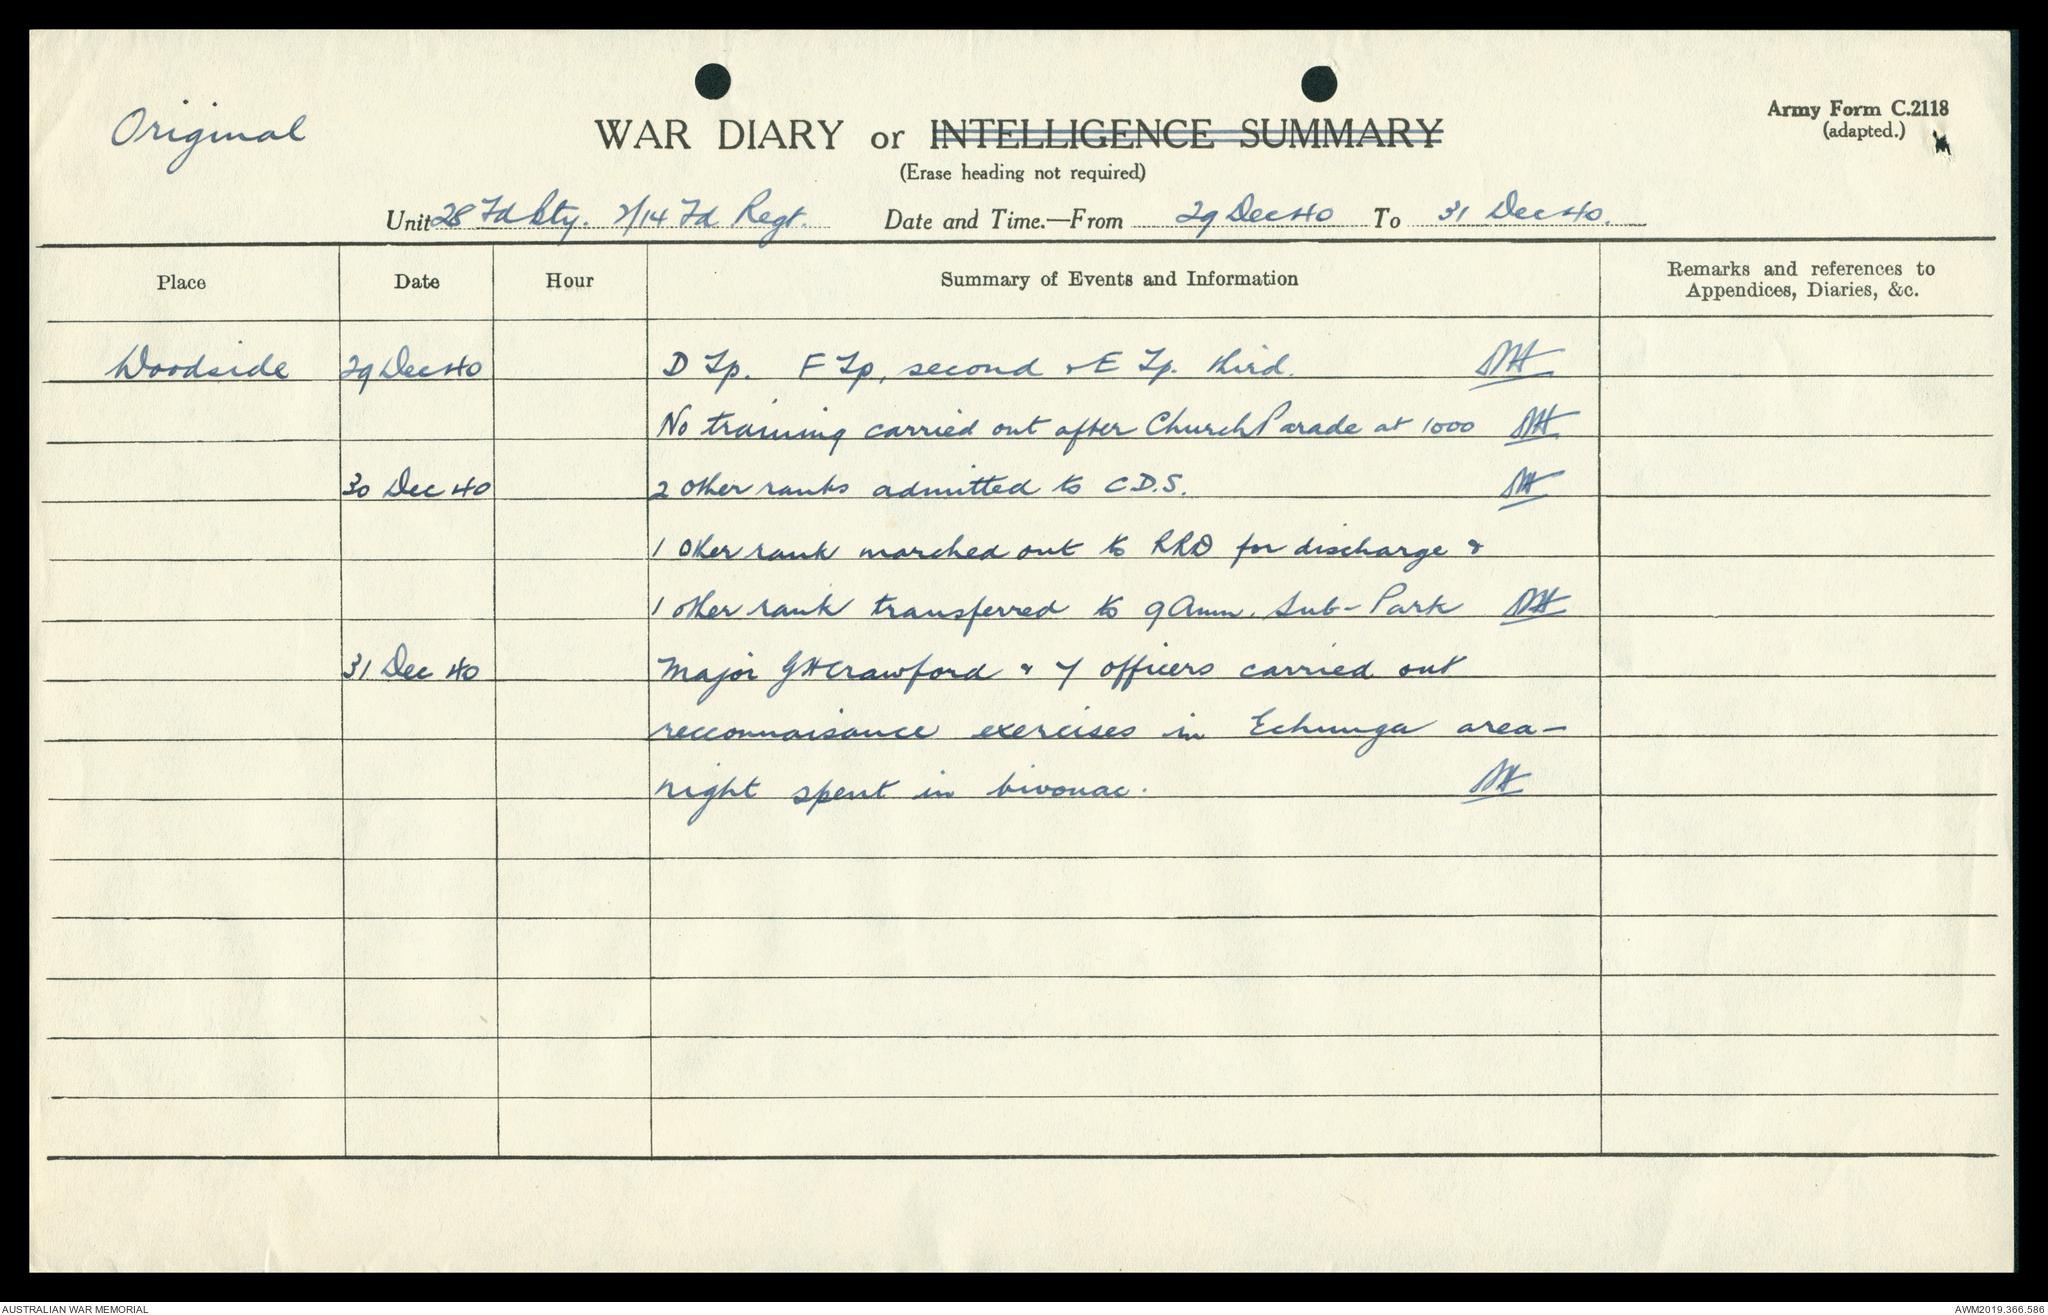 Original
WAR DIARY or INTELLIGENCE SUMMARY
(Erase heading not required)
Army Form C.2118
(adapted.)
Unit 28 Fd Bty. 2/14 Fd Regt. Date and Time.—From 29 Dec 40 To 31 Dec 40.
Place Date Hour Summary of Events and Information Remarks and references to
Appendices, Diaries, &c.
Woodside 29 Dec 40 D Tp. F Tp, second & E Tp. third.
No training carried out after Church Parade at 1000
30 Dec 40 2 other ranks admitted to C.D.S.
1 other rank marched out to RRD for discharge &
1 other rank transferred to 9 Amm. Sub-Park
31 Dec 40 Major GH Crawford & 7 officers carried out
recconnaisance exercises in Echunga area—
night spent in bivouac.
AUSTRALIAN WAR MEMORIAL
AWM2019.366.586